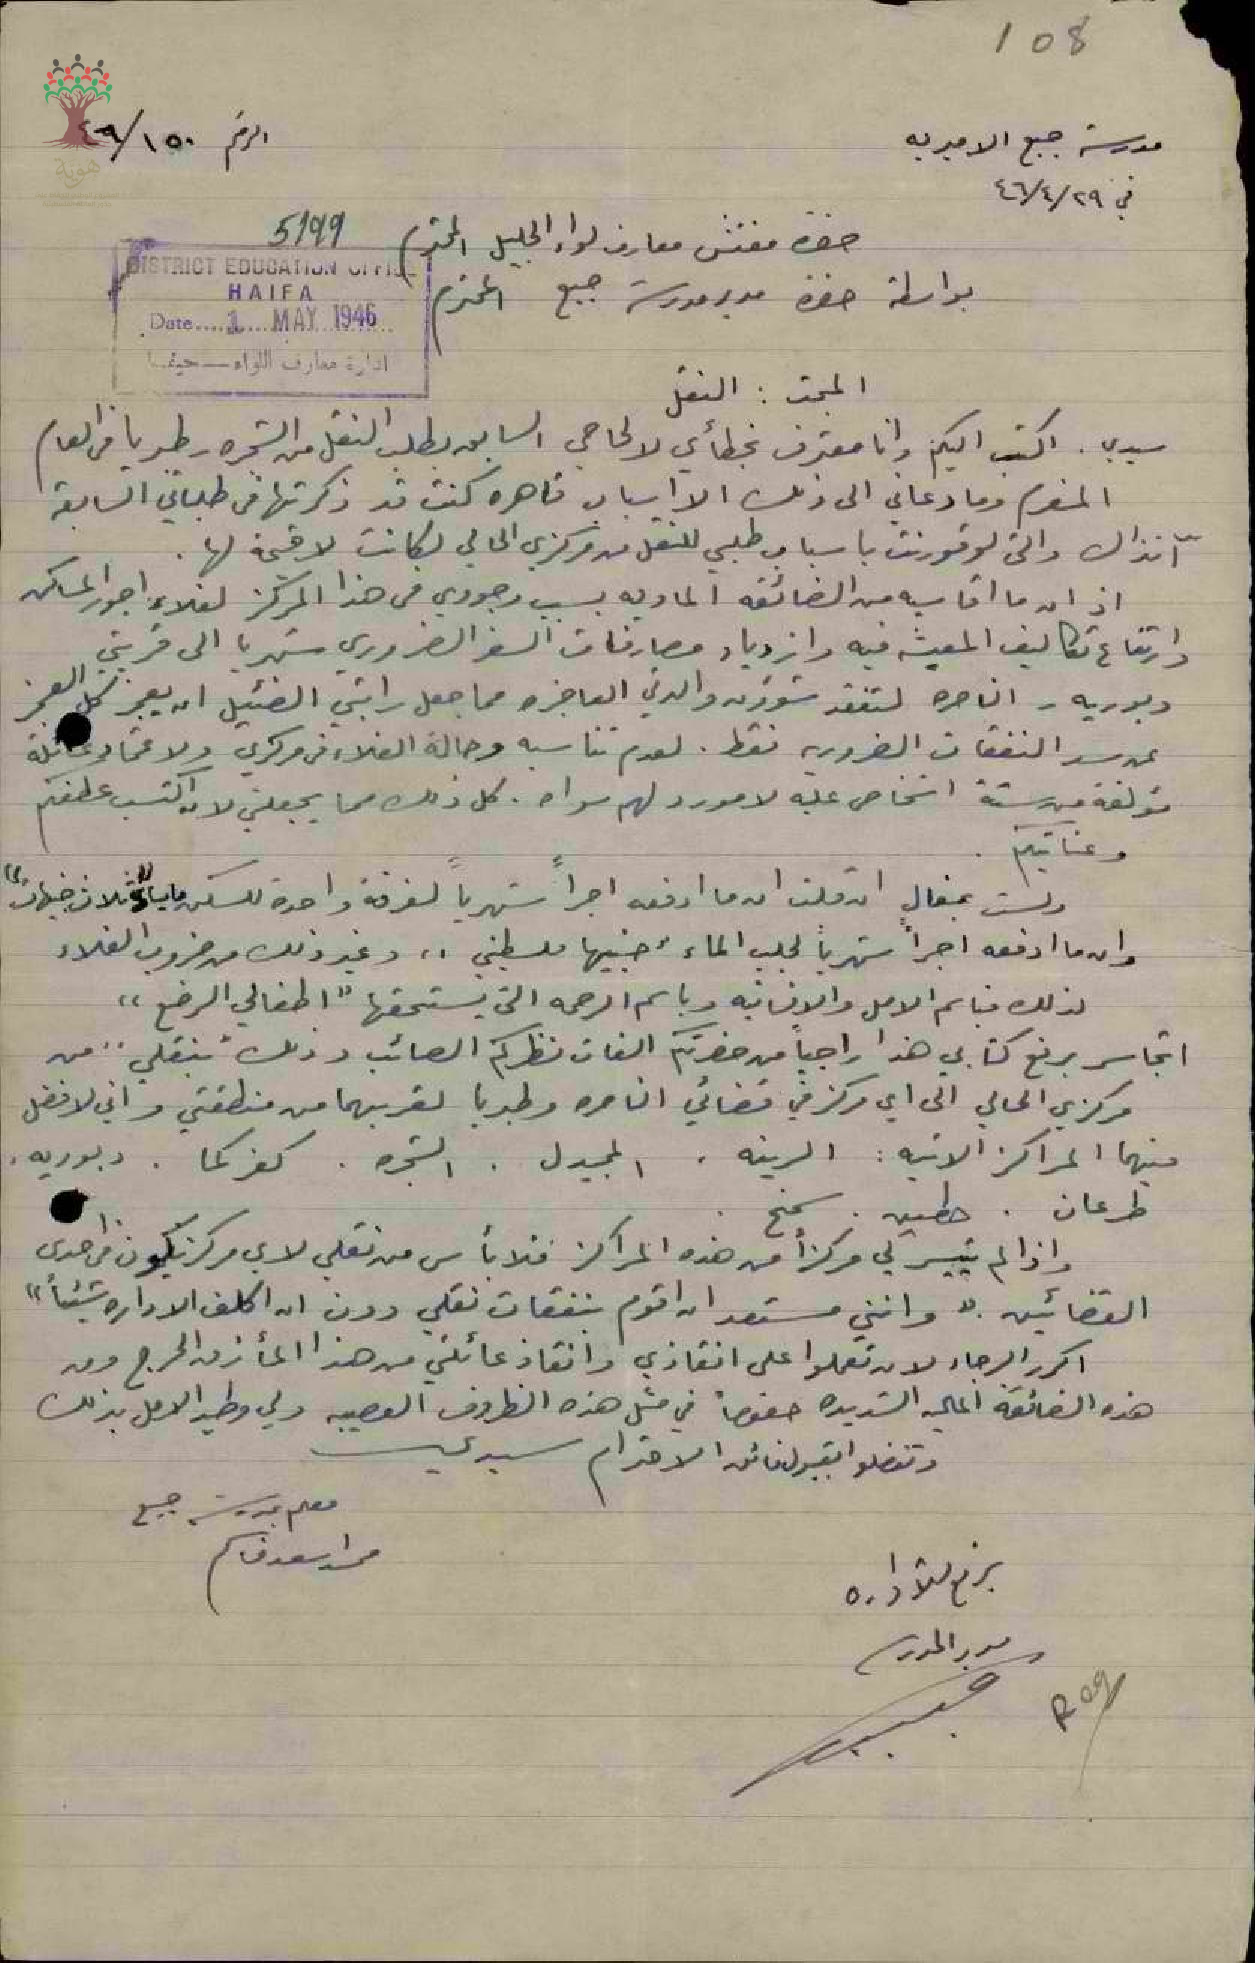 108
مدرسة جبع الاميريه
الرقم ١٥٠/٤٩
في ٢٩/٤/٤٦
5199
حضرة مفتش معارف لواء الجليل المحترم
بواسطة حضرة مدير مدرسة جبع المحترم
DISTRICT EDUCATION OFFICE
HAIFA
Date.... 1 MAY 1946
ادارة معارف اللواء — حيفا
المبحث : النقل
سيدي . اكتب اليكم وانا معترف بخطأي لالحاحي السابق بطلب النقل من الشجره وطبريا في العام
المنصرم وما دعاني الى ذلك الا اسباب قاهره كنت قد ذكرتها في طلباتي السابقة
آنذاك والتي لو قورنت باسباب طلبي للنقل من مركزي الحالي لكانت لا قيمة لها .
اذ ان ما اقاسيه من الضائقه الماديه بسبب وجودي في هذا المركز لغلاء اجور المساكن
وارتفاع تكاليف المعيشه فيه وازدياد مصارفات السفر الضروري شهريا الى قريتي
دبوريه - الناصره لتفقد شؤون والدتي العاجزه مما جعل راتبي الضئيل ان يعجز كل العجز
عن سد النفقات الضروريه فقط . لعدم تناسبه وحالة الغلاء في مركزي ولاعتماد عائلة
مؤلفة من ستة اشخاص عليه لا مورد لهم سواه . كل ذلك مما يجعلني لان اكتسب عطفكم
وعنايتكم .
ولست بمغالٍ ان قلت ان ما ادفعه اجراً شهرياً لغرفة واحدة للسكن ما يساوي "ثلاث جنيهات"
وان ما ادفعه اجراً شهرياً لجلب الماء "جنيها فلسطيني" وغير ذلك من ضروب الغلاء
لذلك فباسم الامل والانسانيه وباسم الرحمه التي يستحقها "اطفالي الرضع"
اتجاسر برفع كتابي هذا راجياً من حضرتكم الفات نظركم الصائب وذلك "بنقلي" من
مركزي الحالي الى اي مركز في قضائي الناصره وطبريا لقربهما من منطقتي واني لافضل
منهما المراكز الاتيه : الرينه . المجيدل . الشجره . كفركما . دبوريه .
طرعان . حطين . سمخ .
واذا لم يتيسر لي مركزاً من هذه المراكز فلا بأس من نقلي لاي مركز يكون في احدى
القضائين . "وانني مستعد ان اقوم بنفقات نقلي دون ان اكلف الاداره شيئاً"
اكرر الرجاء لان تعملوا على انقاذي وانقاذ عائلتي من هذا المأزق الحرج ومن
هذه الضائقة الماليه الشديده خصوصاً في مثل هذه الظروف العصيبه ولي وطيد الامل بذلك
وتفضلوا بقبول فائق الاحترام سيدي
معلم بمدرسة جبع
محمد اسعد قاسم
يرفع للاداره
مدير المدرسة
Reg
هوية